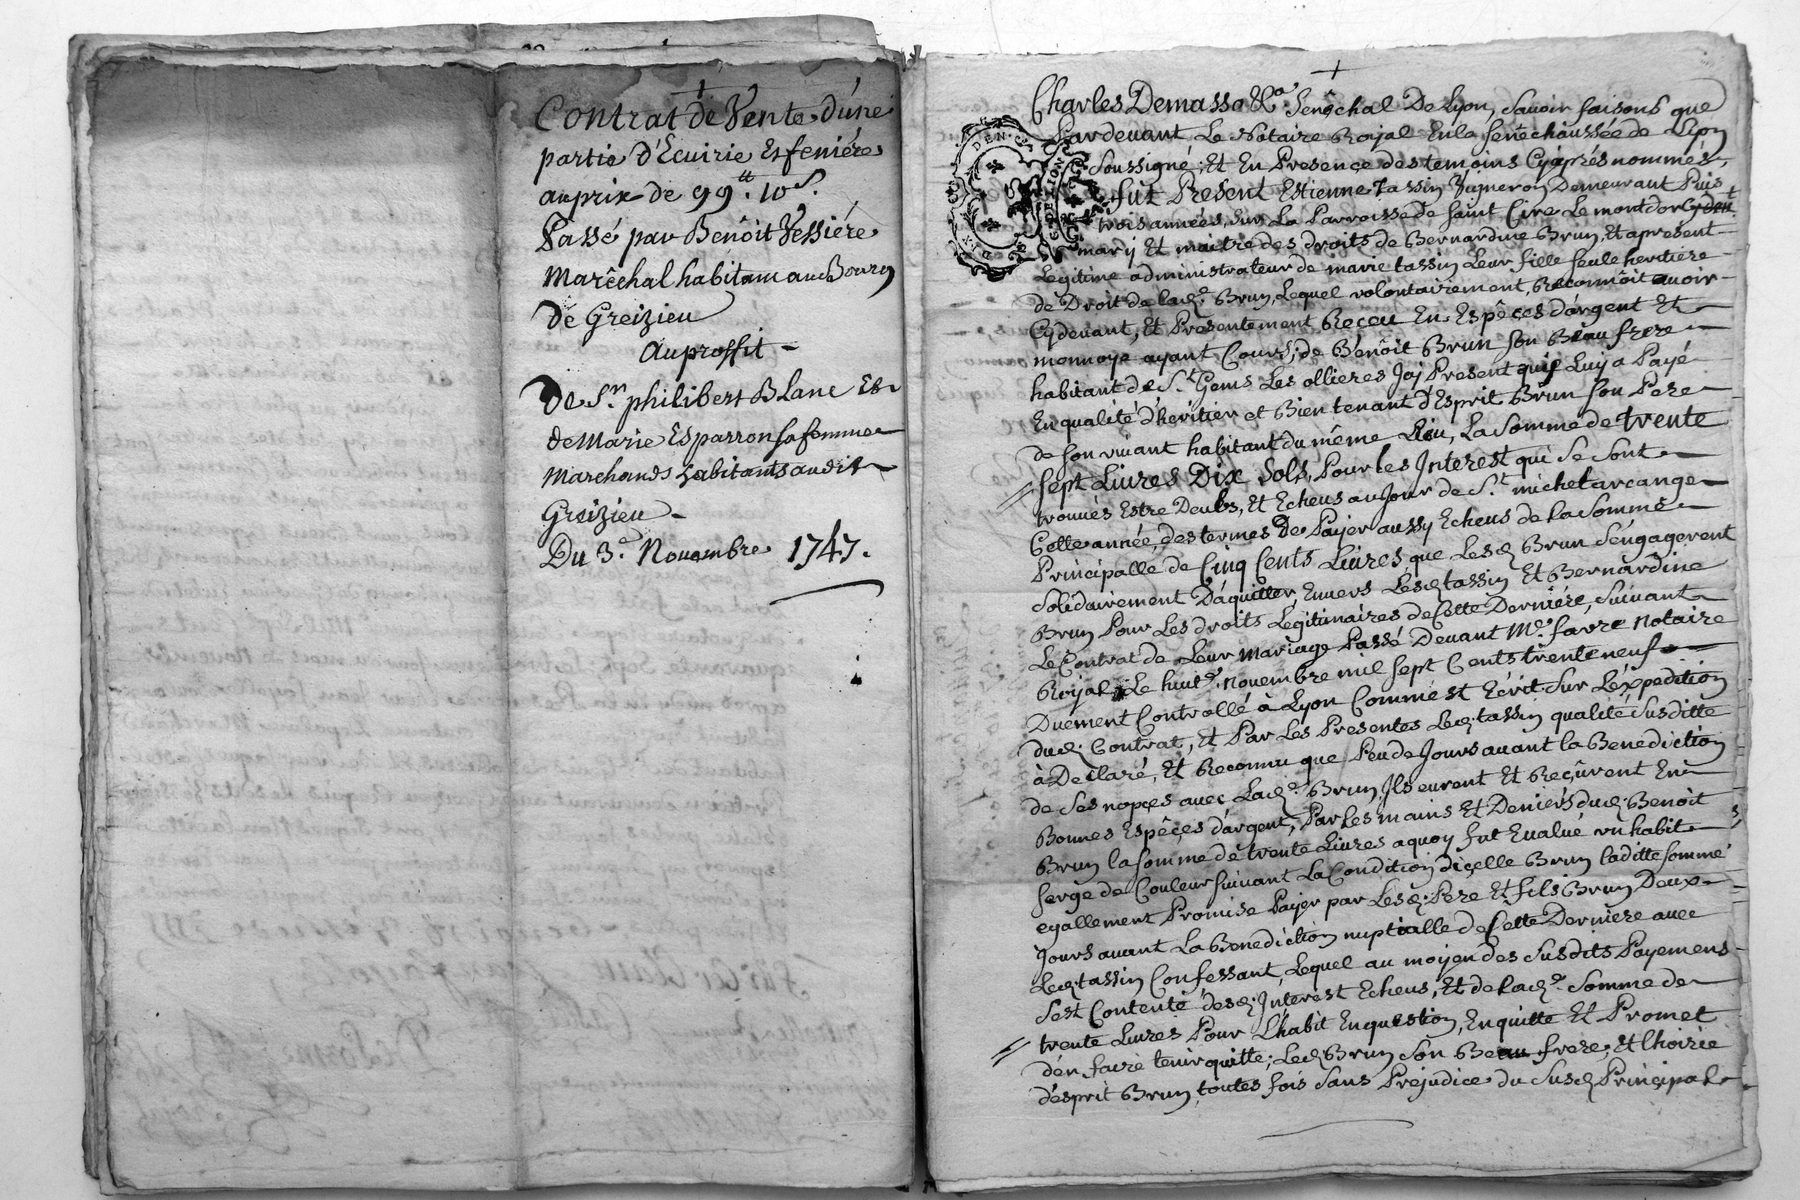 Contrat de Vente d'une
partie d'Ecuirie Et feniére
au prix de 99tt. 10s.
Passé par Benôit Vessiére
Marêchal habitant au Bourg
De Greizieu
Au proffit -
De Sr. philibert Blanc Et
de Marie Esparron sa femme
Marchands habitants audit
Greizieu -
Du 3e. Nouembre 1747.
Charles Demasso &a. Senêchal De Lyon, Sauoir faisons que
Pardeuant Le Notaire Royal En la senéchaussée de Lyon
Soussigné; Et En Presence des temoins Cyaprés nommés,
fût Present Estienne tassin Vigneron Demeurant Puis
trois années, sur La Parroisse de Saint Cire Le montdor Cydeut
mary Et maitre des droits de Bernardine Brun, Et apresent
Legitime administrateur de marie tassin Leur fille seule heritiere
de Droit de lade. Brun, Lequel volontairement, Reconnôit auoir
Cydeuant, Et Presentement Reçeu En Espêçes d'argent Et
monnoye ayant Cours, de Bénôit Brun son Beau frere
habitant de St. Genis Les ollieres Jcy Present qui Luy a Payé
En qualité d'heritier et Bien tenant d'Esprit Brun son Pere
de son viuant habitant du même Lieu, La Somme de trente
sept Liures Dix Sols, Pour les Jnterest qui se sont
trouués Estre Deubs, Et Echeus au Jour de St. michel arcange
Cette année, des termes de Payer aussy Echeus de La Somme
Principalle de Cinq Cents Liures que Lesd. Brun s'engagerent
Solidairement D'aquitter, Enuers Lesd. tassin Et Bernardine
Brun Pour Les droits Legitimaires de Cette Derniére, Suiuant
Le Contrat de Leur mariage Passé Deuant Me. favre Notaire
Royal Le huite. Nouembre mil sept Cents trente neuf
Duement Controllé à Lyon Comme st Ecrit Sur L'expedition
dud. Contrat, Et Par Les Presentes Led. tassin qualité susditte
à Declaré, Et Reconnu que Peu de Jours auant la Benediction
de Ses nopçes avec Lade. Brun, Jls eurent Et Reçûrent En
Bonnes Espêçes d'argent, Par Les mains Et Deniérs dud. Benoit
Brun la somme de trente Liures a quoy fut Eualué vn habit
serge de Couleur suiuant La Condition d'içelle Brun laditte somme
egallement Promise Payer par Lesd. Pere Et fils Brun Deux
Jours auant La Benediction nuptialle de Cette Derniere auec
Led. tassin Confessant, Lequel au moyen des Susdits Payemens
s'est Contenté desd. Jnterest Echeus, Et de Lade. Somme de
trente Liures Pour L'habit En question, En quitte Et Promet
d'en faire tenir quitte; Led. Brun Son Beau frere; Et L'hoirie
d'esprit Brun, toutes fois Sans Prejudice du Susd. Prinçipal